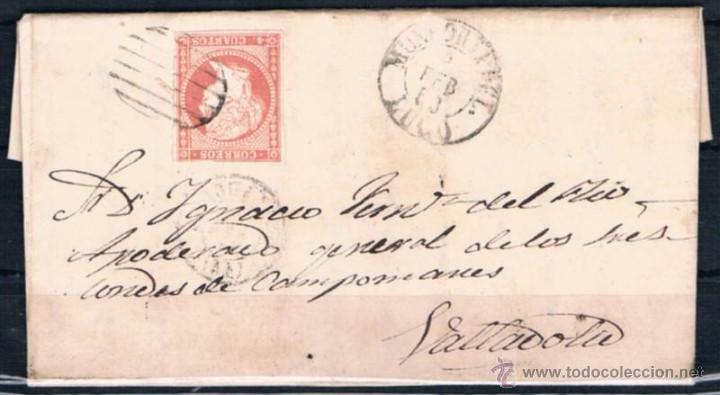 CORREOS
4 CUARTOS
FEB
A D. Ignacio Fern.z del Rio
Apoderado general de los Sres
Condes de Campomanes
Valladolid
todocoleccion.net